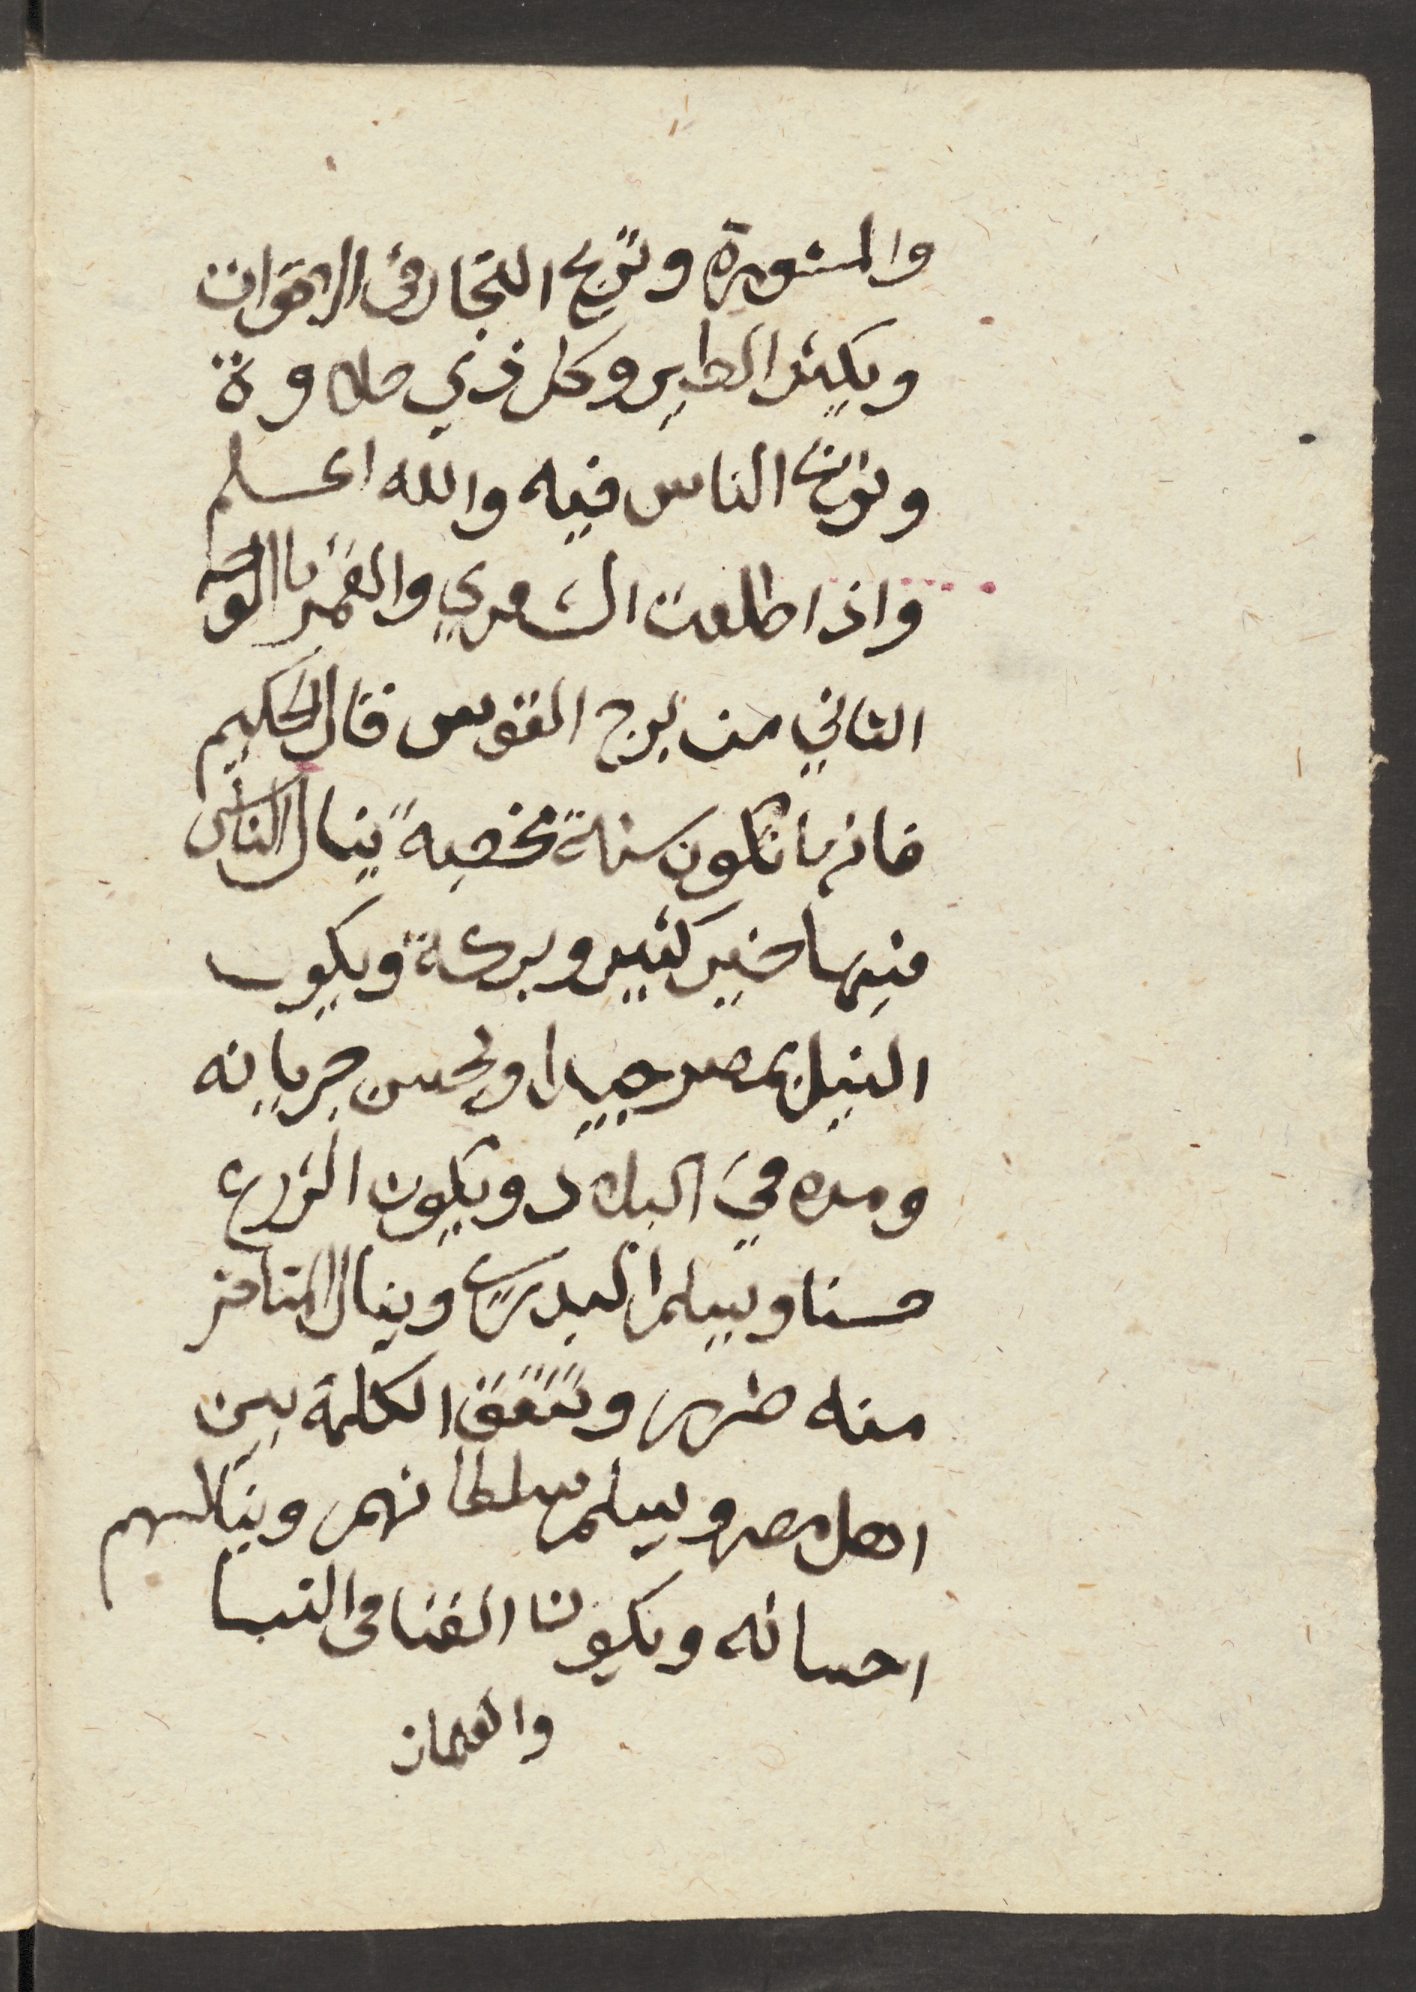 والمشورة وتربح التجار في
ويكثر الطير وكل ذي حلاوة
الناس فيه والله اعلم
واذا طلعت الشعري والقمر بالوجه
الثاني من برج القوس قال الحكيم
فانها تكون سنة مخصبة ينال الناس
فيها خير كثير وبركة ويكون
النيل بمصر جيدا ويحسن جريانه
ومده في البلاد ويكون الزرع
حسنا ويسلم البدري وينال المتاخر
منه ضرر وتتفق الكلمة بين
اهل مصر ويسلم سلطانهم وينالهم
احسانه ويكون الفنا في النسا
والغلمان